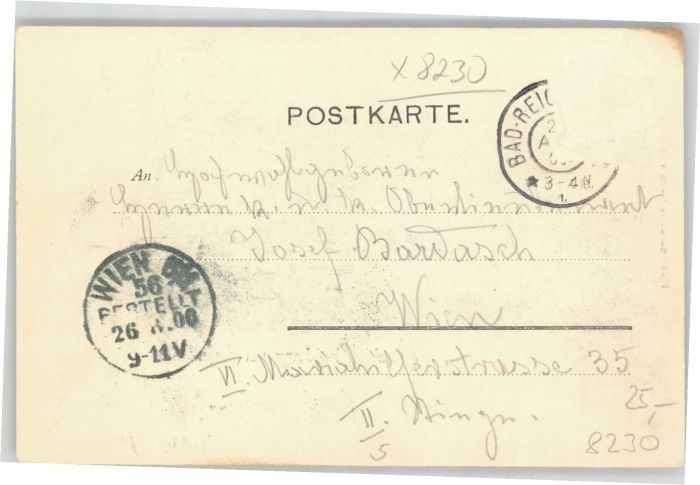 x 8230
POSTKARTE.
BAD-REIC
3-4 N.
1.
An Hochwohlgeboren
Herrn k. u. k. Oberlieutenant
Josef Bardasch
Wien
WIEN
56
BESTELLT
26 00
9-11V
VI. Mariahilferstrasse 35
II. Stiege.
5
25,-
8230